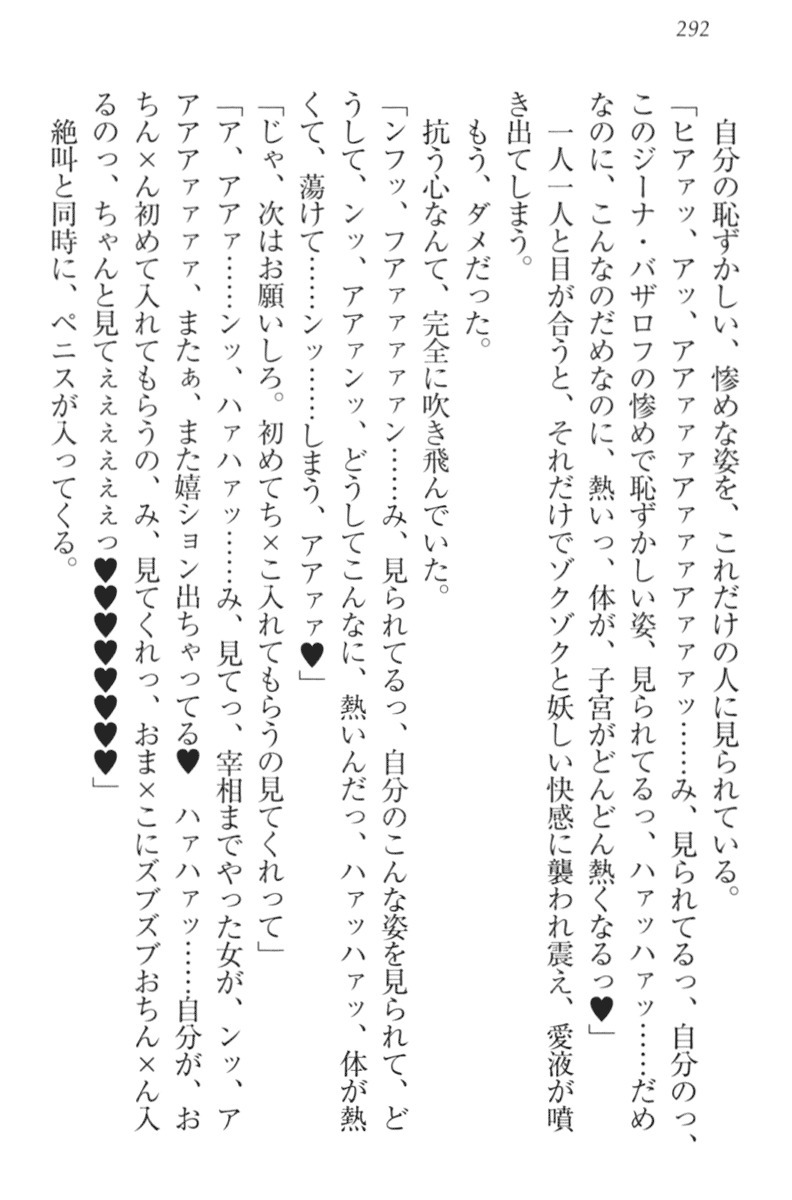 292
自分の恥ずかしい、惨めな姿を、これだけの人に見られている。
「ヒアァッ、アッ、アアァァァアァァァアァァァッ……み、見られてるっ、自分のっ、
このジーナ・バザロフの惨めで恥ずかしい姿、見られてるっ、ハァッハァッ……だめ
なのに、こんなのだめなのに、熱いっ、体が、子宮がどんどん熱くなるっ♥」
一人一人と目が合うと、それだけでゾクゾクと妖しい快感に襲われ震え、愛液が噴
き出てしまう。
もう、ダメだった。
抗う心なんて、完全に吹き飛んでいた。
「ンフッ、フアァァァァァン……み、見られてるっ、自分のこんな姿を見られて、ど
うして、ンッ、アアァンッ、どうしてこんなに、熱いんだっ、ハァッハァッ、体が熱
くて、蕩けて……ンッ……しまう、アアァァ♥」
「じゃ、次はお願いしろ。初めてち×こ入れてもらうの見てくれって」
「ア、アアァ……ンッ、ハァハァッ……み、見てっ、宰相までやった女が、ンッ、ア
アアアァァァァ、またぁ、また嬉ション出ちゃってる♥　ハァハァッ……自分が、お
ちん×ん初めて入れてもらうの、み、見てくれっ、おま×こにズブズブおちん×ん入
るのっ、ちゃんと見てぇぇぇぇぇぇっ♥♥♥♥♥♥♥♥」
絶叫と同時に、ペニスが入ってくる。